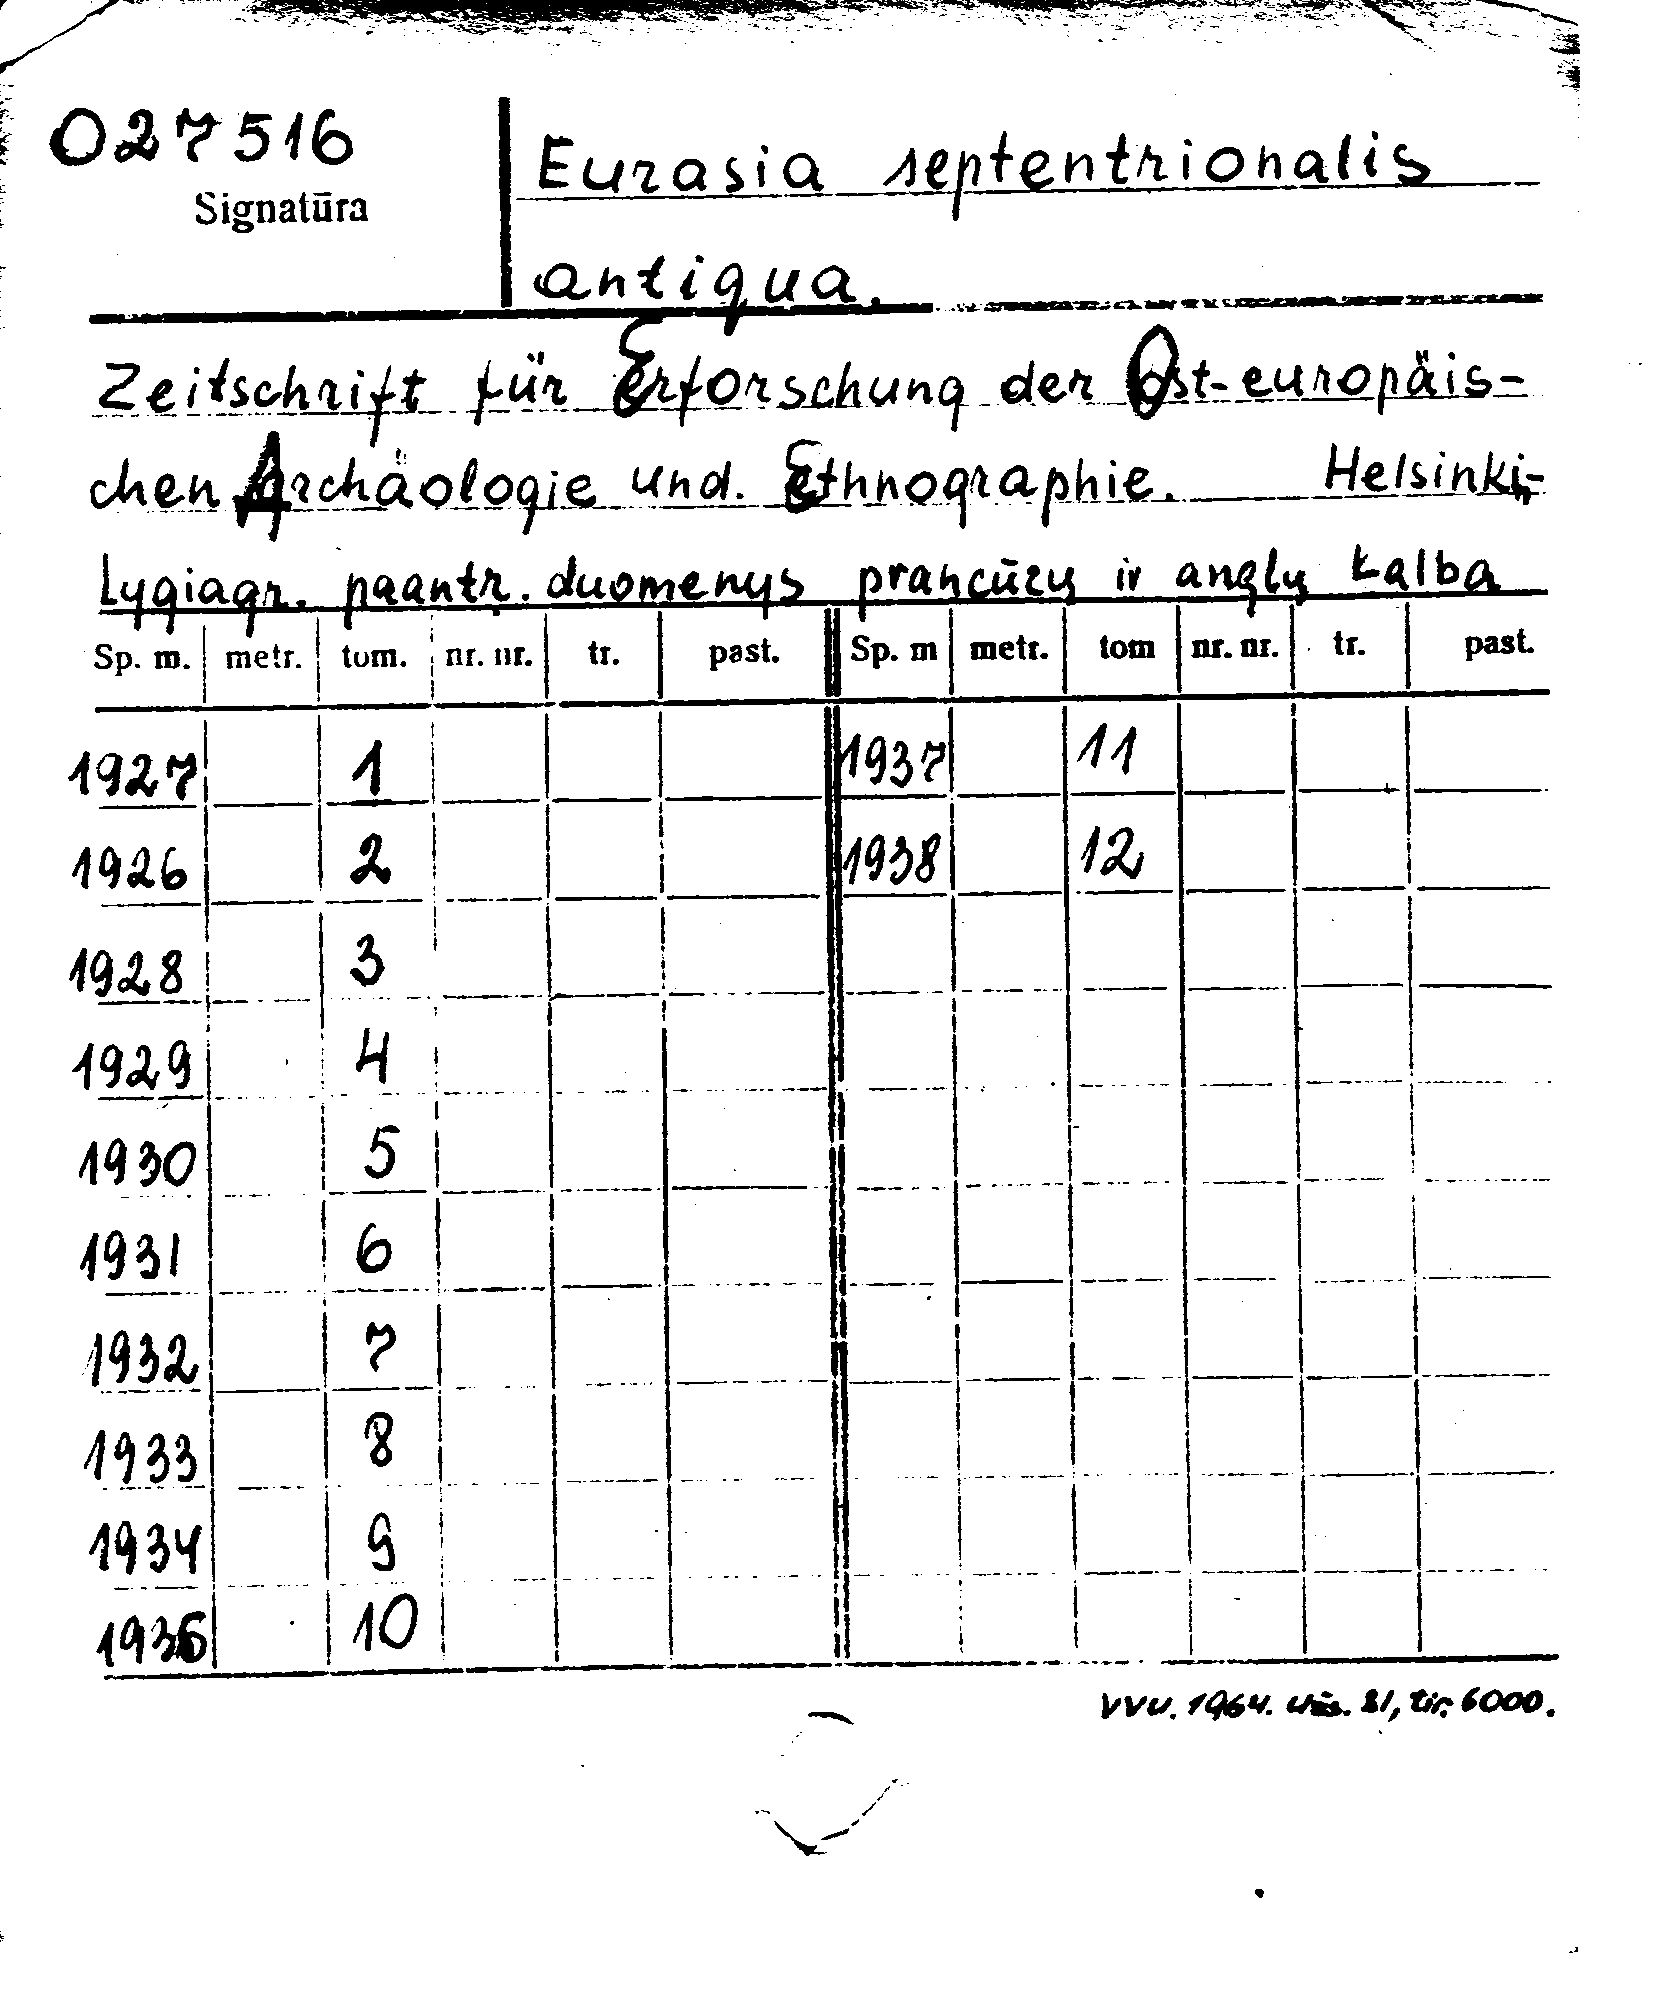 027516
Signatūra
Eurasia septentrionalis
antiqua.
Zeitschrift für Erforschung der Ost-europäis-
chen Archäologie und. Ethnographie. Helsinki,-
Lygiagr. paantr. duomenys prancūzų ir anglų kalba
Sp. m. metr. tom. nr. nr. tr. past. Sp. m metr. tom nr. nr. tr. past.
1927 1 1937 11
1926 2 1938 12
1928 3
1929 4
1930 5
1931 6
1932 7
1933 8
1934 9
1936 10
VVU. 1964. Užs. 81, tir. 6000.